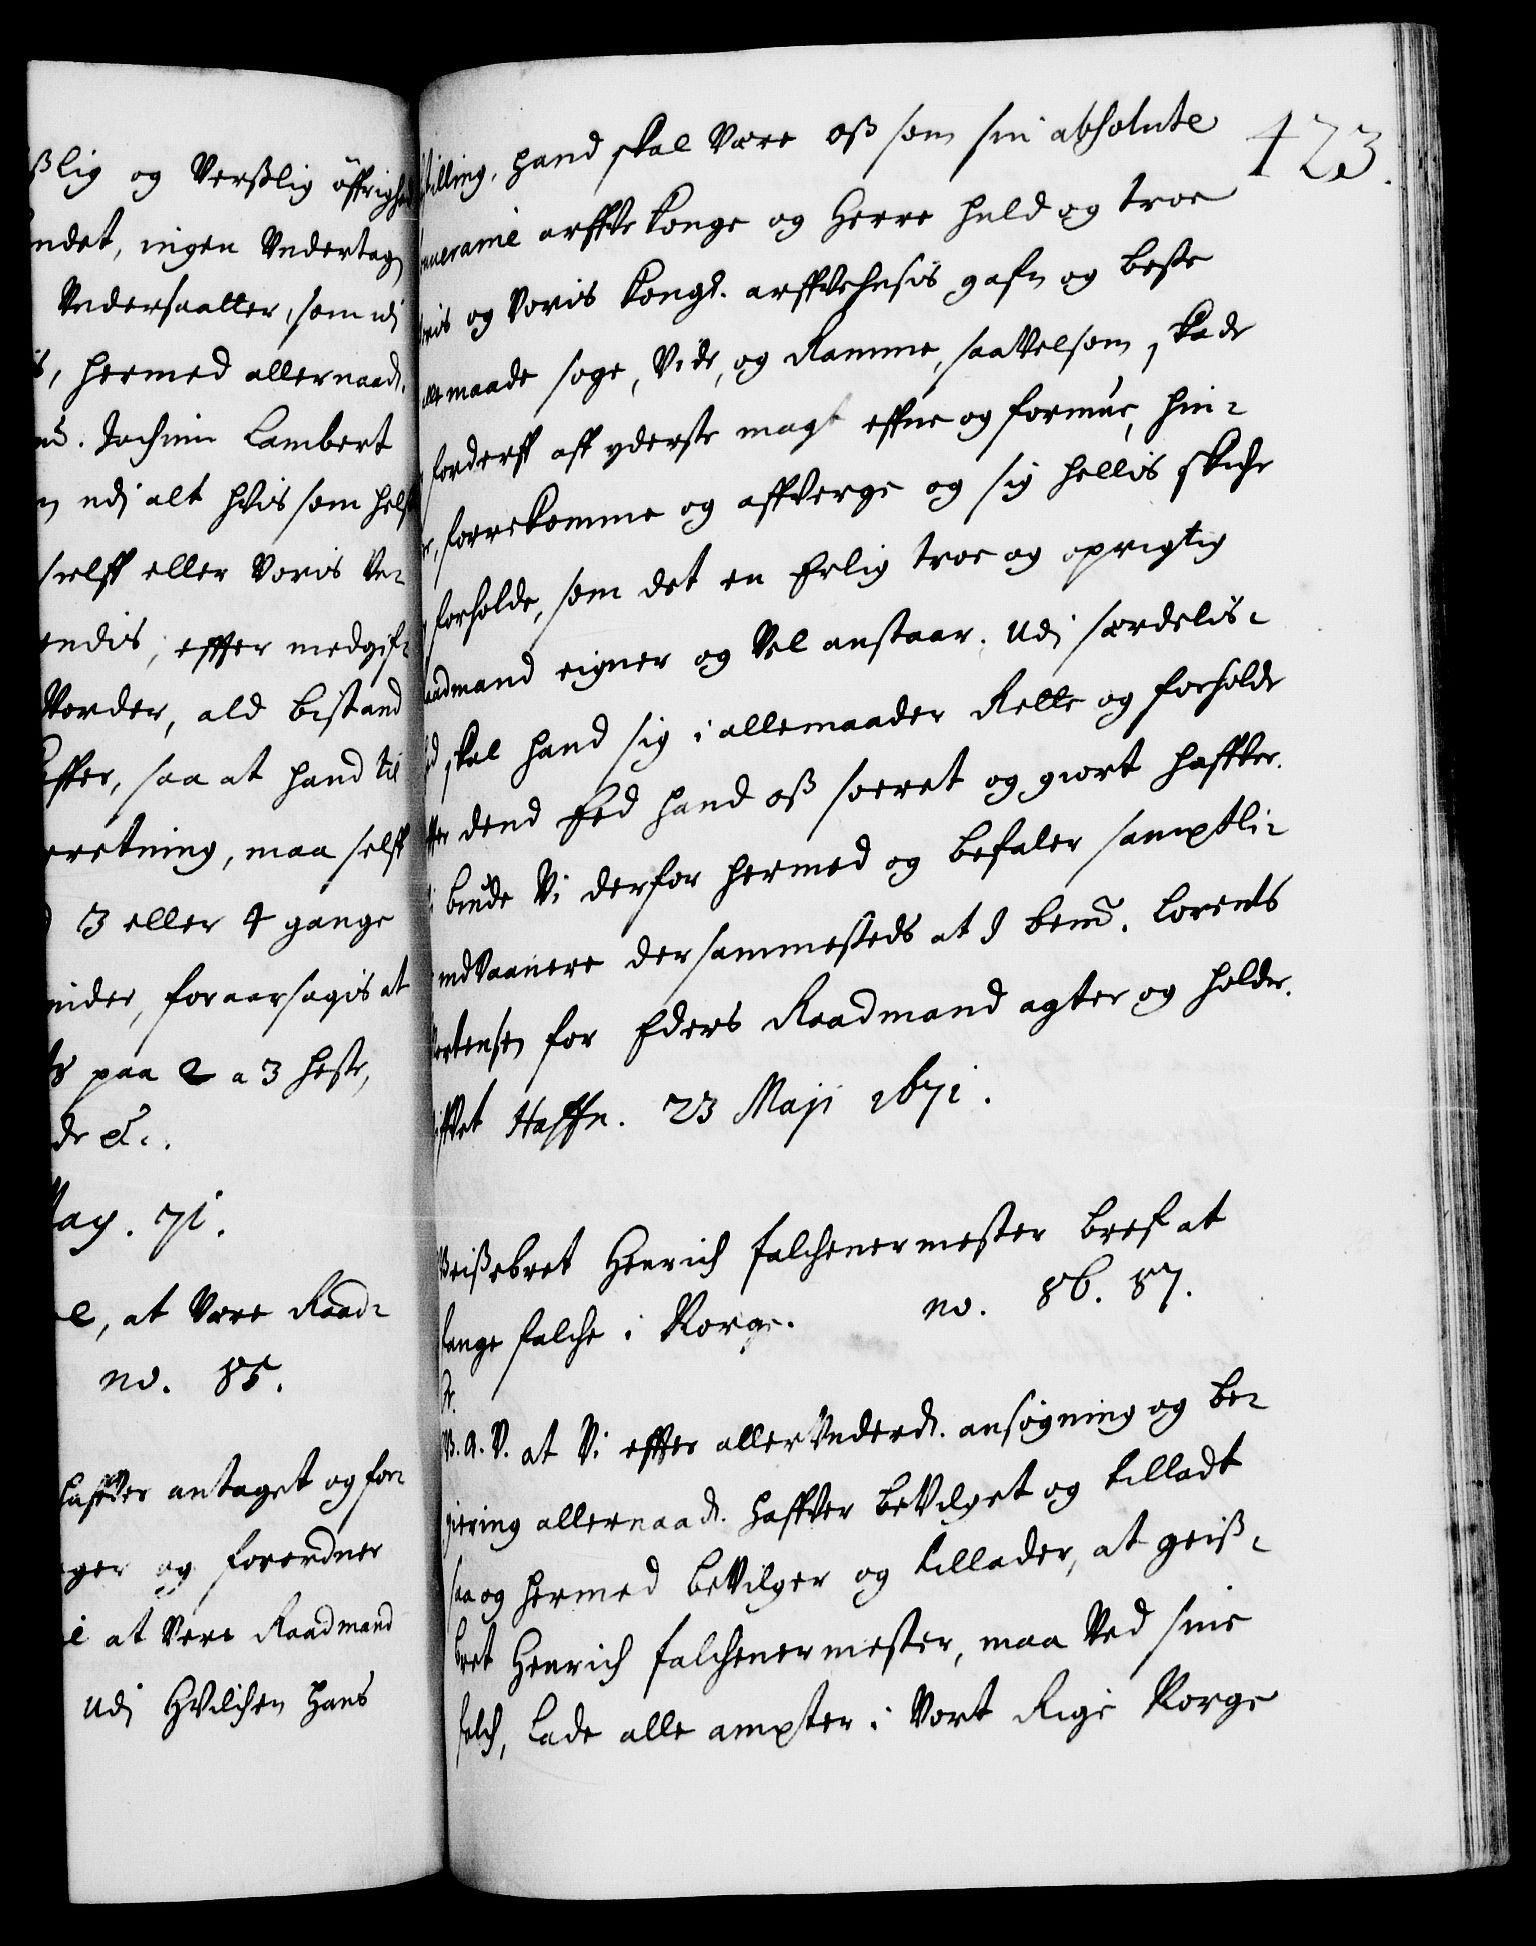 ßlig og Verßlig öffrighed
ndet, ingen Undertag
Undersaatter, som udj
s, hermed allernaad.
nd. Jochim Lambert
n udj alt hvis som helst
sielff eller Voris Ve-
endis, effter medgif-
Vorder, ald bistand
ffter, saa at hand til
retning, maa self
3 eller 4 gange
nider, foraarsagis at
paa 2 a 3 heste,
de etc.
May. 71.
e, at Være Raad-
no. 85.
haffver antaget og for-
ger og forordner
e at Være Raadmand
Udj Hvilchen hans
423.
stilling, hand skal Være oß som sin absolute
souveraine arffve Konge og Herre huld og troe
Voris og Voris Kongl. arffvehusis gafn og beste
alle maade søge, Vide, og Ramme, saavelsom skade
forderff aff yderste magt effne og formue, hin-
forrekomme og affverge og sig hellis skiche
forholde, som det en Erlig troe og oprigtig
Raadmand eigner og Vel anstaar. Udj særdelis-
skal hand sig i allemaader Rette og forholde
effter dend Eed hand oß soeret og giort haffver.
biude Vi derfor hermed og befaler samptli-
indvaanere dersammesteds at I bemd. Lorents
Mortensen for Eders Raadmand agter og holder.
Haffn. 23 Maji 1671.
Geißebret Henrich falchenermester bref at
fange falche i Norge. no. 86. 87.
G. A. V. at Vi effter allerunderd. ansøgning og be-
giering allernaad. haffver beVilget og tilladt
saa og hermed beVilger og tillader, at geiß-
bret Henrich falchenermester, maa Ved sine
folch, Lade alle ampter i Vort Rige Norge